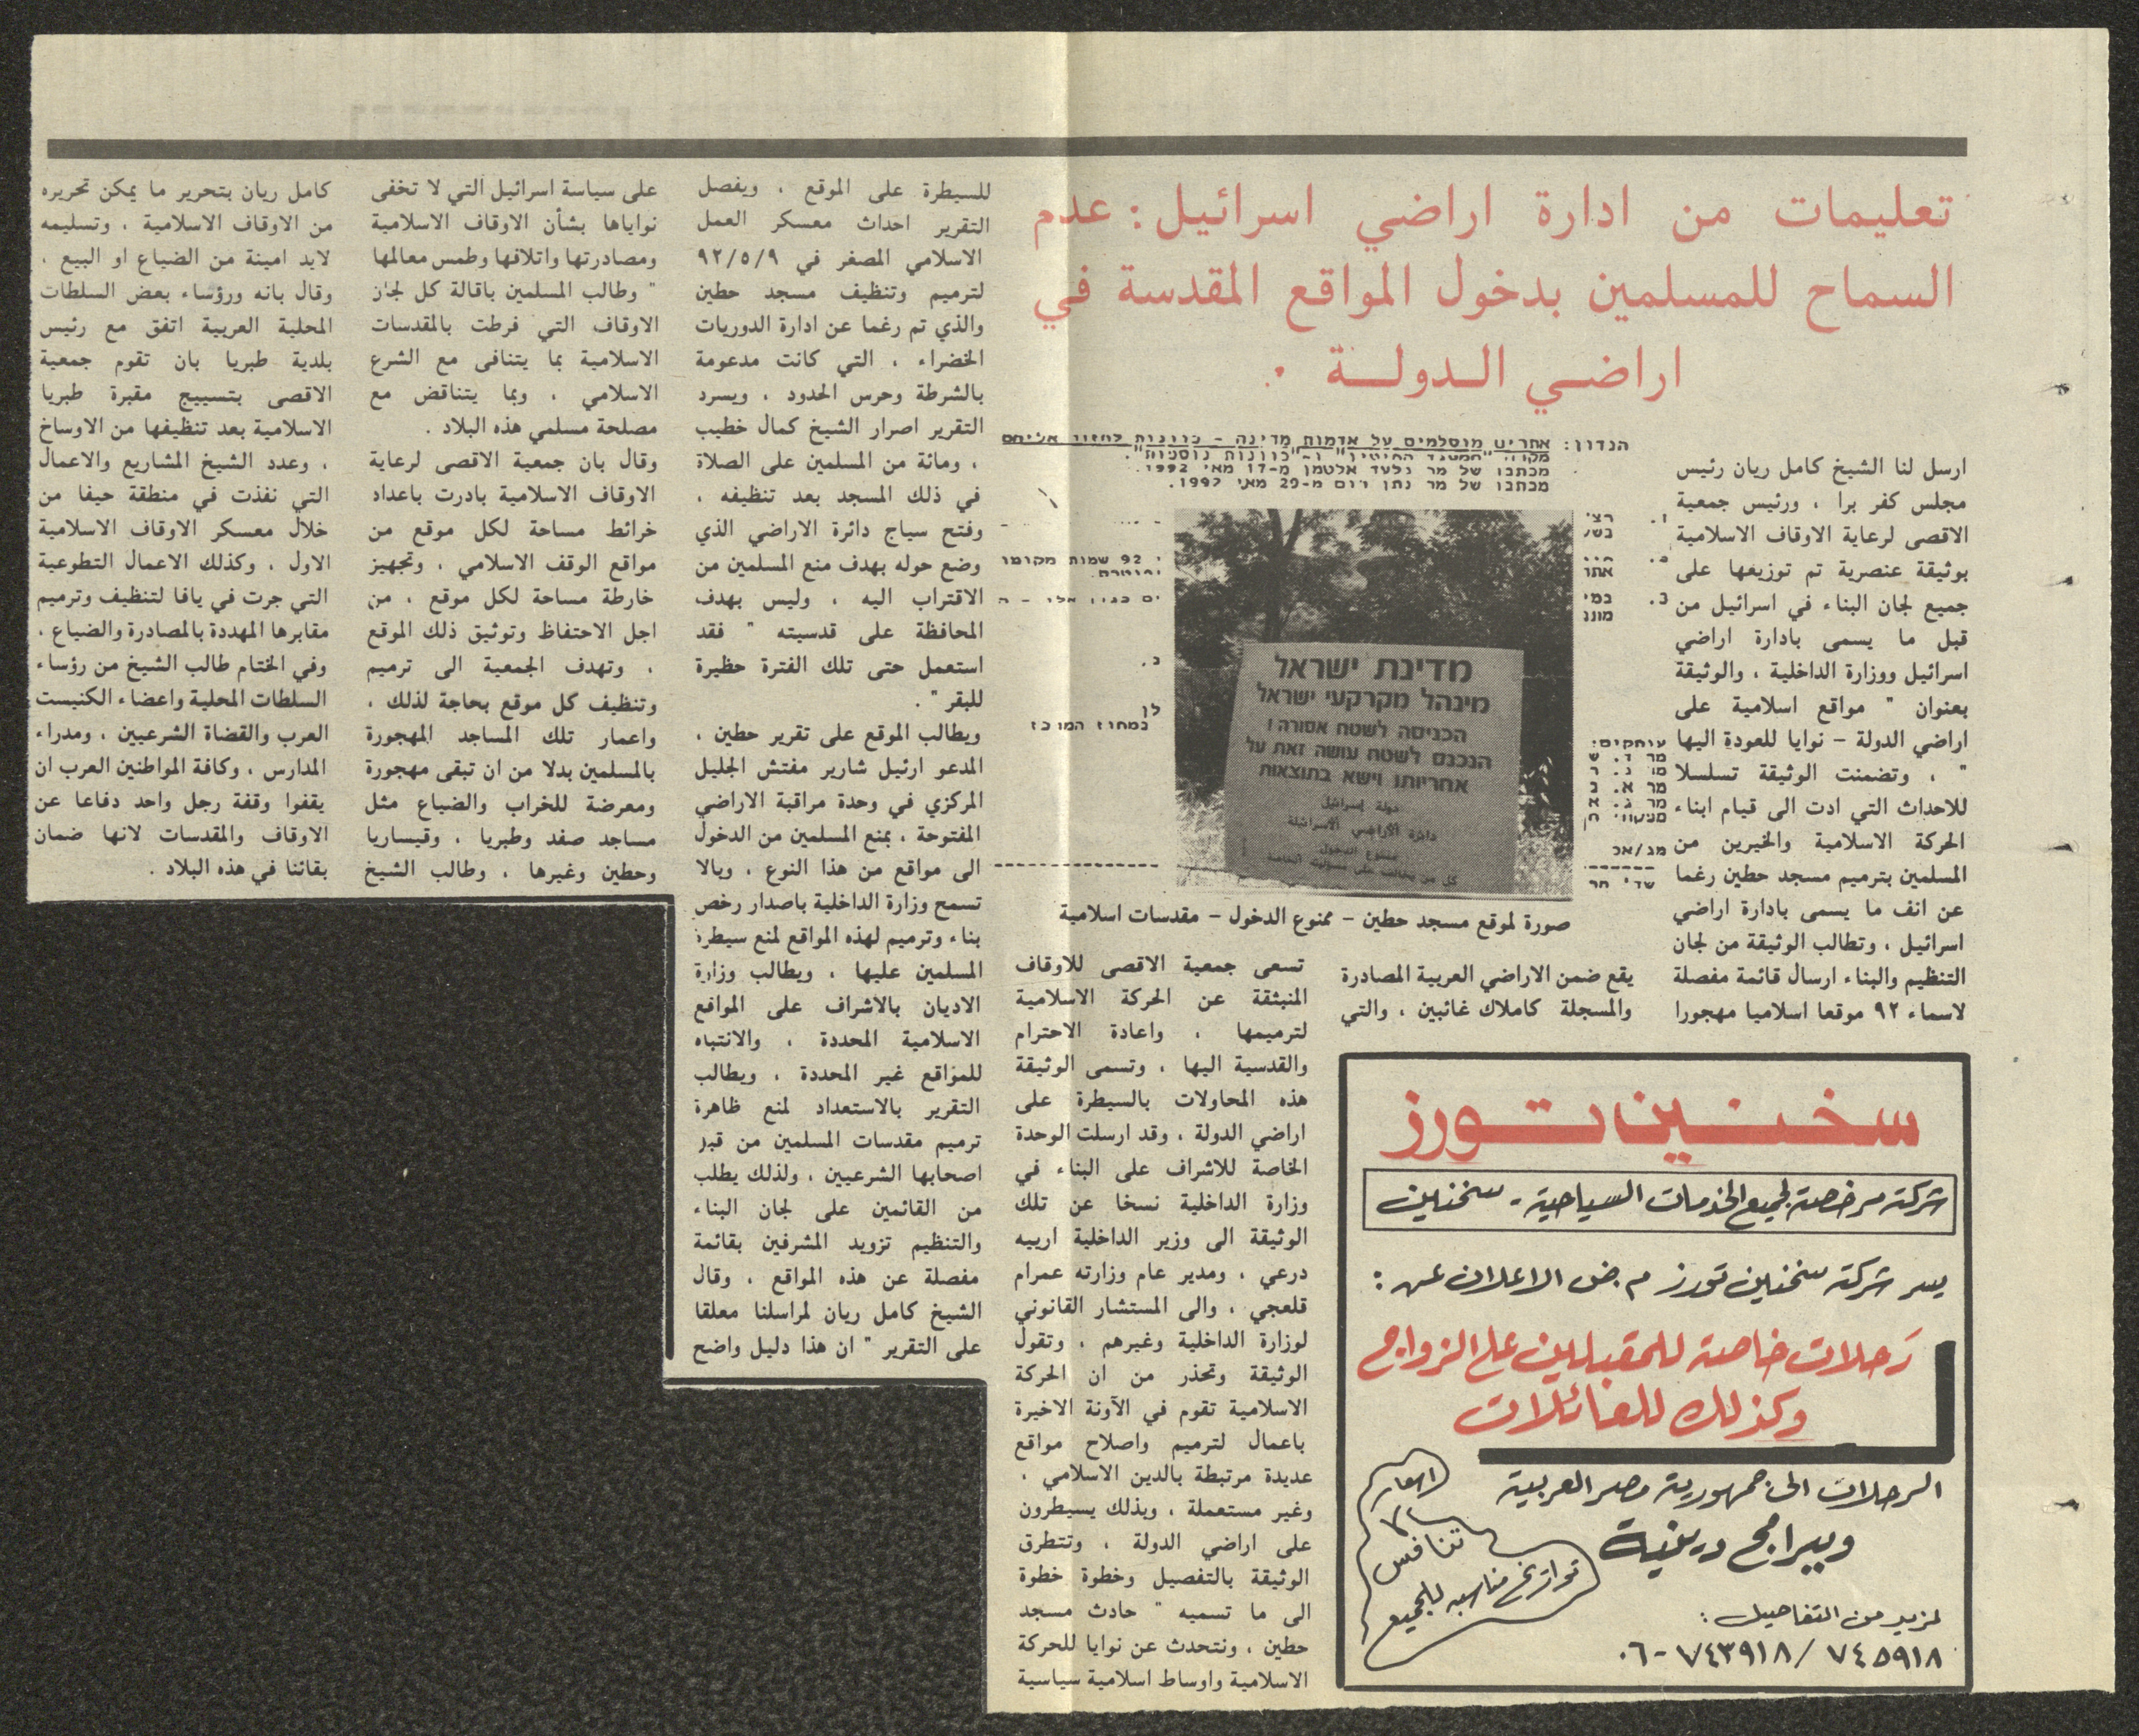 تعليمات من ادارة اراضي اسرائيل : عدم
السماح للمسلمين بدخول المواقع المقدسة في
اراضي الدولة .
ارسل لنا الشيخ كامل ريان رئيس
مجلس كفر برا ، ورئيس جمعية
الاقصى لرعاية الاوقاف الاسلامية
بوثيقة عنصرية تم توزيعها على
جميع لجان البناء في اسرائيل من
قبل ما يسمى بادارة اراضي
اسرائيل ووزارة الداخلية ، والوثيقة
بعنوان " مواقع اسلامية على
اراضي الدولة - نوايا للعودة اليها
" ، وتضمنت الوثيقة تسلسلا
للاحداث التي ادت الى قيام ابناء
الحركة الاسلامية والخيرين من
المسلمين بترميم مسجد حطين رغما
عن انف ما يسمى بادارة اراضي
اسرائيل ، وتطالب الوثيقة من لجان
التنظيم والبناء ارسال قائمة مفصلة
لاسماء ٩٢ موقعا اسلاميا مهجورا
הנדון: אתרים מוסלמים על אדמות מדינה - כוונות לחזור אליהם
מכתבו של מר גלעד אלטמן מ-17 מאי 1992.
מכתבו של מר נתן רום מ-29 מאי 1992.
92 שמות מקומו
במחוז המרכז
עותקים:
מדינת ישראל
מינהל מקרקעי ישראל
הכניסה לשטח אסורה !
הנכנס לשטח עושה זאת על
אחריותו וישא בתוצאות
دولة إسرائيل
دائرة الأراضي الأسرائيلة
ممنوع الدخول
كل من يخالف على مسؤليته الخاصة
صورة لموقع مسجد حطين - ممنوع الدخول - مقدسات اسلامية
يقع ضمن الاراضي العربية المصادرة
والمسجلة كاملاك غائبين ، والتي
تسعى جمعية الاقصى للاوقاف
المنبثقة عن الحركة الاسلامية
لترميمها ، واعادة الاحترام
والقدسية اليها ، وتسمى الوثيقة
هذه المحاولات بالسيطرة على
اراضي الدولة ، وقد ارسلت الوحدة
الخاصة للاشراف على البناء في
وزارة الداخلية نسخا عن تلك
الوثيقة الى وزير الداخلية ارييه
درعي ، ومدير عام وزارته عمرام
قلعجي ، والى المستشار القانوني
لوزارة الداخلية وغيرهم ، وتقول
الوثيقة وتحذر من ان الحركة
الاسلامية تقوم في الآونة الاخيرة
باعمال لترميم واصلاح مواقع
عديدة مرتبطة بالدين الاسلامي ،
وغير مستعملة ، وبذلك يسيطرون
على اراضي الدولة ، وتتطرق
الوثيقة بالتفصيل وخطوة خطوة
الى ما تسميه " حادث مسجد
حطين ، ونتحدث عن نوايا للحركة
الاسلامية واوساط اسلامية سياسية
للسيطرة على الموقع ، ويفصل
التقرير احداث معسكر العمل
الاسلامي المصغر في ٩٢/٥/٩
لترميم وتنظيف مسجد حطين
والذي تم رغما عن ادارة الدوريات
الخضراء ، التي كانت مدعومة
بالشرطة وحرس الحدود ، ويسرد
التقرير اصرار الشيخ كمال خطيب
، ومائة من المسلمين على الصلاة
في ذلك المسجد بعد تنظيفه ،
وفتح سياج دائرة الاراضي الذي
وضع حوله بهدف منع المسلمين من
الاقتراب اليه ، وليس بهدف
المحافظة على قدسيته " فقد
استعمل حتى تلك الفترة حظيرة
للبقر " .
ويطالب الموقع على تقرير حطين ،
المدعو ارئيل شارير مفتش الجليل
المركزي في وحدة مراقبة الاراضي
المفتوحة ، بمنع المسلمين من الدخول
الى مواقع من هذا النوع ، وبالا
تسمح وزارة الداخلية باصدار رخص
بناء وترميم لهذه المواقع لمنع سيطرة
المسلمين عليها ، ويطالب وزارة
الاديان بالاشراف على المواقع
الاسلامية المحددة ، والانتباه
للمواقع غير المحددة ، ويطالب
التقرير بالاستعداد لمنع ظاهرة
ترميم مقدسات المسلمين من قبل
اصحابها الشرعيين ، ولذلك يطلب
من القائمين على لجان البناء
والتنظيم تزويد المشرفين بقائمة
مفصلة عن هذه المواقع ، وقال
الشيخ كامل ريان لمراسلنا معلقا
على التقرير " ان هذا دليل واضح
على سياسة اسرائيل التي لا تخفى
نواياها بشأن الاوقاف الاسلامية
ومصادرتها واتلافها وطمس معالمها
" وطالب المسلمين باقالة كل لجان
الاوقاف التي فرطت بالمقدسات
الاسلامية بما يتنافى مع الشرع
الاسلامي ، وبما يتناقض مع
مصلحة مسلمي هذه البلاد .
وقال بان جمعية الاقصى لرعاية
الاوقاف الاسلامية بادرت باعداد
خرائط مساحة لكل موقع من
مواقع الوقف الاسلامي ، وتجهيز
خارطة مساحة لكل موقع ، من
اجل الاحتفاظ وتوثيق ذلك الموقع
، وتهدف الجمعية الى ترميم
وتنظيف كل موقع بحاجة لذلك ،
واعمار تلك المساجد المهجورة
بالمسلمين بدلا من ان تبقى مهجورة
ومعرضة للخراب والضياع مثل
مساجد صفد وطبريا ، وقيساريا
وحطين وغيرها ، وطالب الشيخ
كامل ريان بتحرير ما يمكن تحريره
من الاوقاف الاسلامية ، وتسليمه
لايد امينة من الضياع او البيع ،
وقال بانه ورؤساء بعض السلطات
المحلية العربية اتفق مع رئيس
بلدية طبريا بان تقوم جمعية
الاقصى بتسييج مقبرة طبريا
الاسلامية بعد تنظيفها من الاوساخ
، وعدد الشيخ المشاريع والاعمال
التي نفذت في منطقة حيفا من
خلال معسكر الاوقاف الاسلامية
الاول ، وكذلك الاعمال التطوعية
التي جرت في يافا لتنظيف وترميم
مقابرها المهددة بالمصادرة والضياع .
وفي الختام طالب الشيخ من رؤساء
السلطات المحلية واعضاء الكنيست
العرب والقضاة الشرعيين ، ومدراء
المدارس ، وكافة المواطنين العرب ان
يقفوا وقفة رجل واحد دفاعا عن
الاوقاف والمقدسات لانها ضمان
بقائنا في هذه البلاد .
سخنين تورز
شركة مرخصة لجميع الخدمات السياحية - سخنين
يسر شركة سخنين تورز م.ض الاعلان عن :
رحلات خاصة للمقبلين على الزواج
وكذلك للعائلات
الرحلات الى جمهورية مصر العربية
وببرامج دينية
اسعار
لا
تنافس
تواريخ مناسبه للجميع
لمزيد من التفاصيل :
٠٦-٧٤٣٩١٨/٧٤٥٩١٨